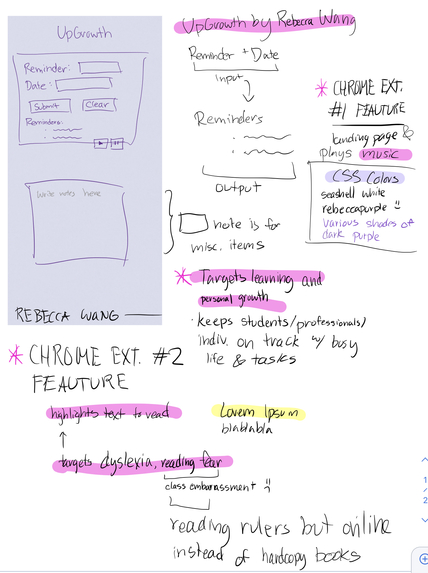 UpGrowth
Reminder:
Date:
Submit Clear
Reminders:
Write notes here
REBECCA WANG
UpGrowth by Rebecca Wang
Reminder + Date
Input
Reminders
output
note is for
misc. items
* CHROME EXT.
#1 FEAUTURE
landing page &
plays music
CSS Colors
seashell white
rebeccapurple :)
various shades of
dark purple
* Targets learning and
personal growth
· keeps students/professionals/
indiv. on track w/ busy
life & tasks
* CHROME EXT. #2
FEAUTURE
highlights text to read
Lorem Ipsum
blablabla
targets dyslexia, reading fear
class embarassment :(
reading rulers but online
instead of hardcopy books
1
2